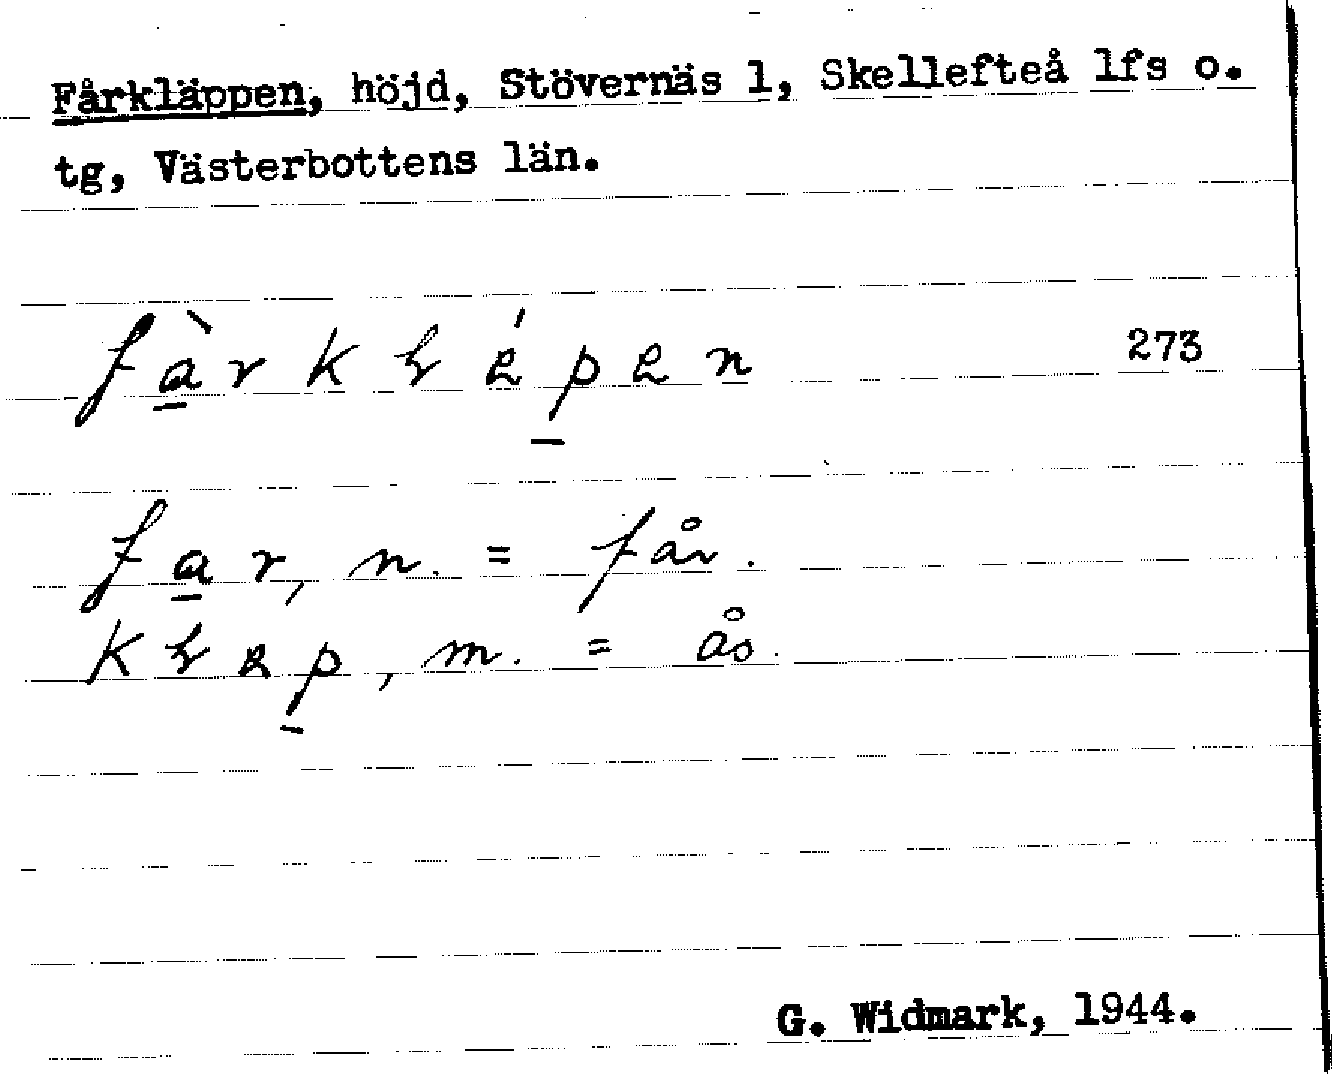 Fårkläppen, höjd, Stövernäs 1, Skellefteå lfs o.
tg, Västerbottens län.
273
far, n. = får.
m. = ås.
G. Widmark, 1944.